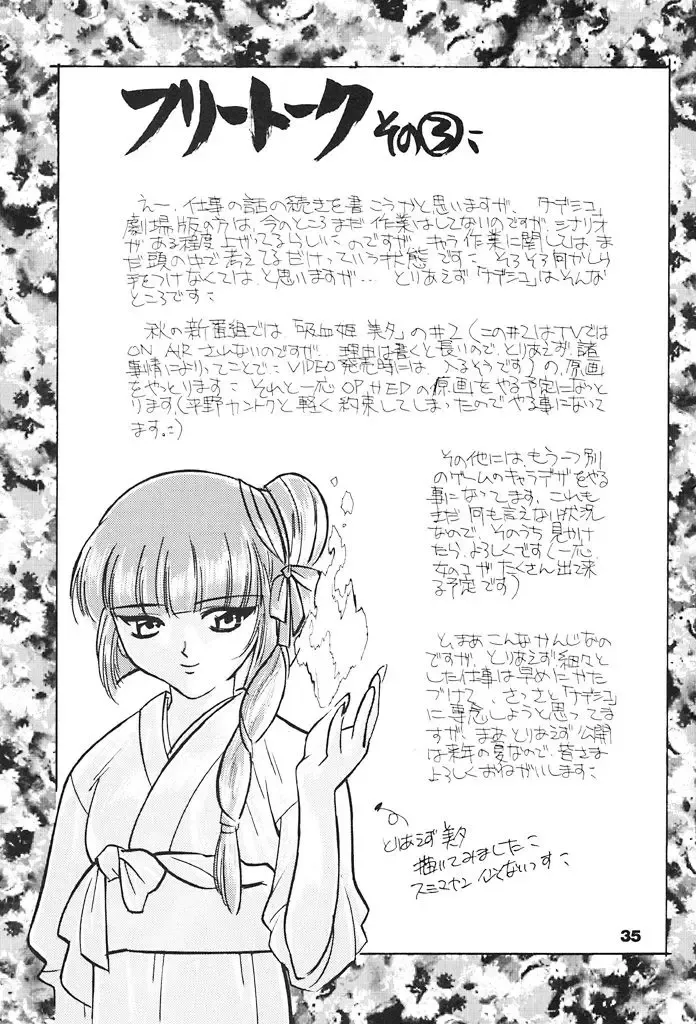 フリートーク その③：
えー、仕事の話の続きを書こうかと思いますが、「ナデシコ」
劇場版の方は、今のところまだ作業はしてないのですが、シナリオ
がある程度上がってるらしいのですが、キャラ作業に関しては、ま
だ頭の中で考えてるだけっていう状態です： そろそろ何かしら
手をつけなくては、と思いますが… とりあえず「ナデシコ」はそんな
ところです：
秋の新番組では「吸血姫 美夕」の#2(この#2はTVでは
ON AIR されないのですが、理由は書くと長いので、とりあえず、諸
事情によりってことで： VIDEO発売時には、入るそうです)の、原画
をやっとります： それと一応 OP.とEDの原画をやる予定になっと
ります。(平野カントクと軽く約束してしまったのでやる事になってい
ます。：)
その他には、もう一つ別
のゲームのキャラデザをやる
事になってます、これも
まだ何も言えない状況
なので、そのうち見かけ
たら、よろしくです(一応
女のコがたくさん出て来
る予定です)
と、まあこんなかんじなの
ですが、とりあえず細々と
した仕事は早めにかた
づけて、さっさと「ナデシコ」
に専念しようと思ってま
すが、まあとりあえず公開
は来年の夏なので、皆さま
よろしくおねがいします：
とりあえず美夕
描いてみました：
スミマセン 似てないっす：
35